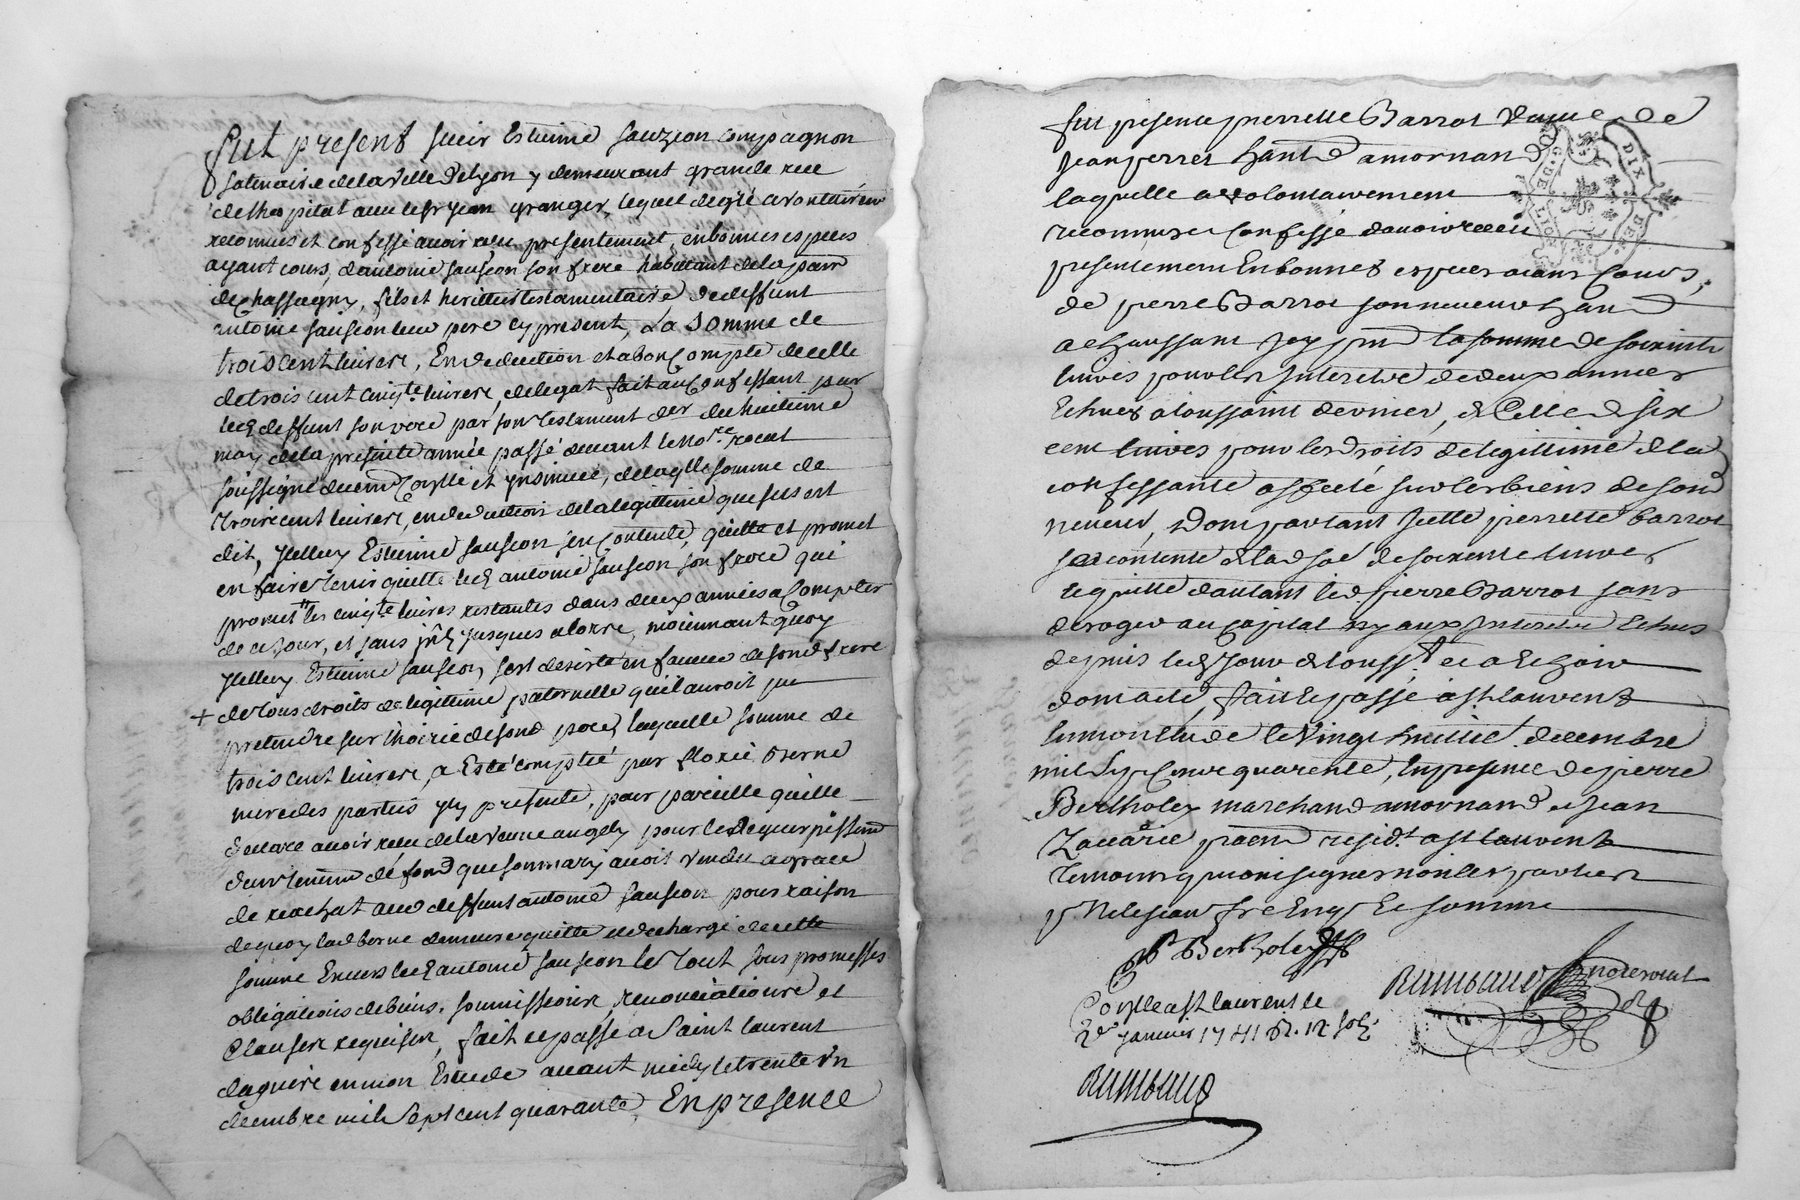 fut present sieur Estienne sauzeon compagnon
satinaire de la ville de lyon y demeurant grande rue
de lhospital avec le sr jean granger, lequel de gré a volontairem
reconnus et confessé avoir reçu presentement, en bonnes especes
ayant cours, d'antoine sauseon son frere habitant de la parr
de chassagny, fils et heritier testamentaire de deffunt
antoine sauseon leur pere cy present, La somme de
trois cent livres, En deduction et a bon Compte de celle
de trois cent cinqte livres, de legat fait au Confessant par
led deffunt son pere par son testament du huitieme
may de la presente année passé devant le nore
soussigné duem Conllé et ynsinué, de laqlle somme de
trois cent livres, en deduction de la legittime que sus est
dit, yCelluy Estienne sauseon s'en Contente, quitte et promet
en faire tenir quitte led antoine sauseon son frere qui
promet les cinqte livres restantes dans deux années a Compter
de ce jour, et sans jusques alorre, moiennant quoy
yCelluy Estienne sauseon, s'est desisté en faveur de sond frere
+ de tous droits de legittime paternelle qu'il auroit pu
pretendre sur l'hoirie de sond pere, laquelle somme de
trois cent livres, a Esté comptée par Berne
mere des parties yci presente, par pareille quelle
declare avoir reçu de la veuve angely pour le deguerpissem
d'un tenem de fond que son mary avoit vendu a grace
de rachat aud deffunt antoine sauseon pour raison
de quoy lad berne demeure quitte et dechargé de cette
somme Envers led antoine sauseon le Tout sous promesses
obligations de biens, soumissions, renonciations et
Clauses requises, fait et passé a Saint laurent
dagnire en mon Estude avant midy le trente un
decembre mil sept cent quarante, En presence
fut presente pierrette Barrot veuve de
jean perret habitte a mornand
laquelle a volontairement
reconnus et Confessé d'avoir receu
presentement En bonnes especes aiant Cours,
de pierre Barrot son neveu habitt
a chaussant icy pnt la somme de soixante
livres pour les Interets de deux années
Echues a toussaint dernier, de Celle de six
cent livres pour les droits de legittime de la
confessante affecté sur les biens de son
neveu, dont partant ycelle pierrette barrot
se contente de lad soe de soixante livres
et quitte d'autant led pierre Barrot sans
deroger au Capital ny aux Interets Echus
depuis led jour de toussts et a Echoir
dont acte, fait et passé a st laurent
en mon Etude le vingt huitie decembre
mil sept Cent quarente, En presence de pierre
Bertholey marchand a mornand et jean
Zacarie residt a st laurent
temoins qui ont signés non les parties
p ne le scavoir fre Enqs Et sommés
P Bertholey
Conlle a st laurent le
2e janvier 1741 R. 12 sols
G. DE LION
DIX DEN